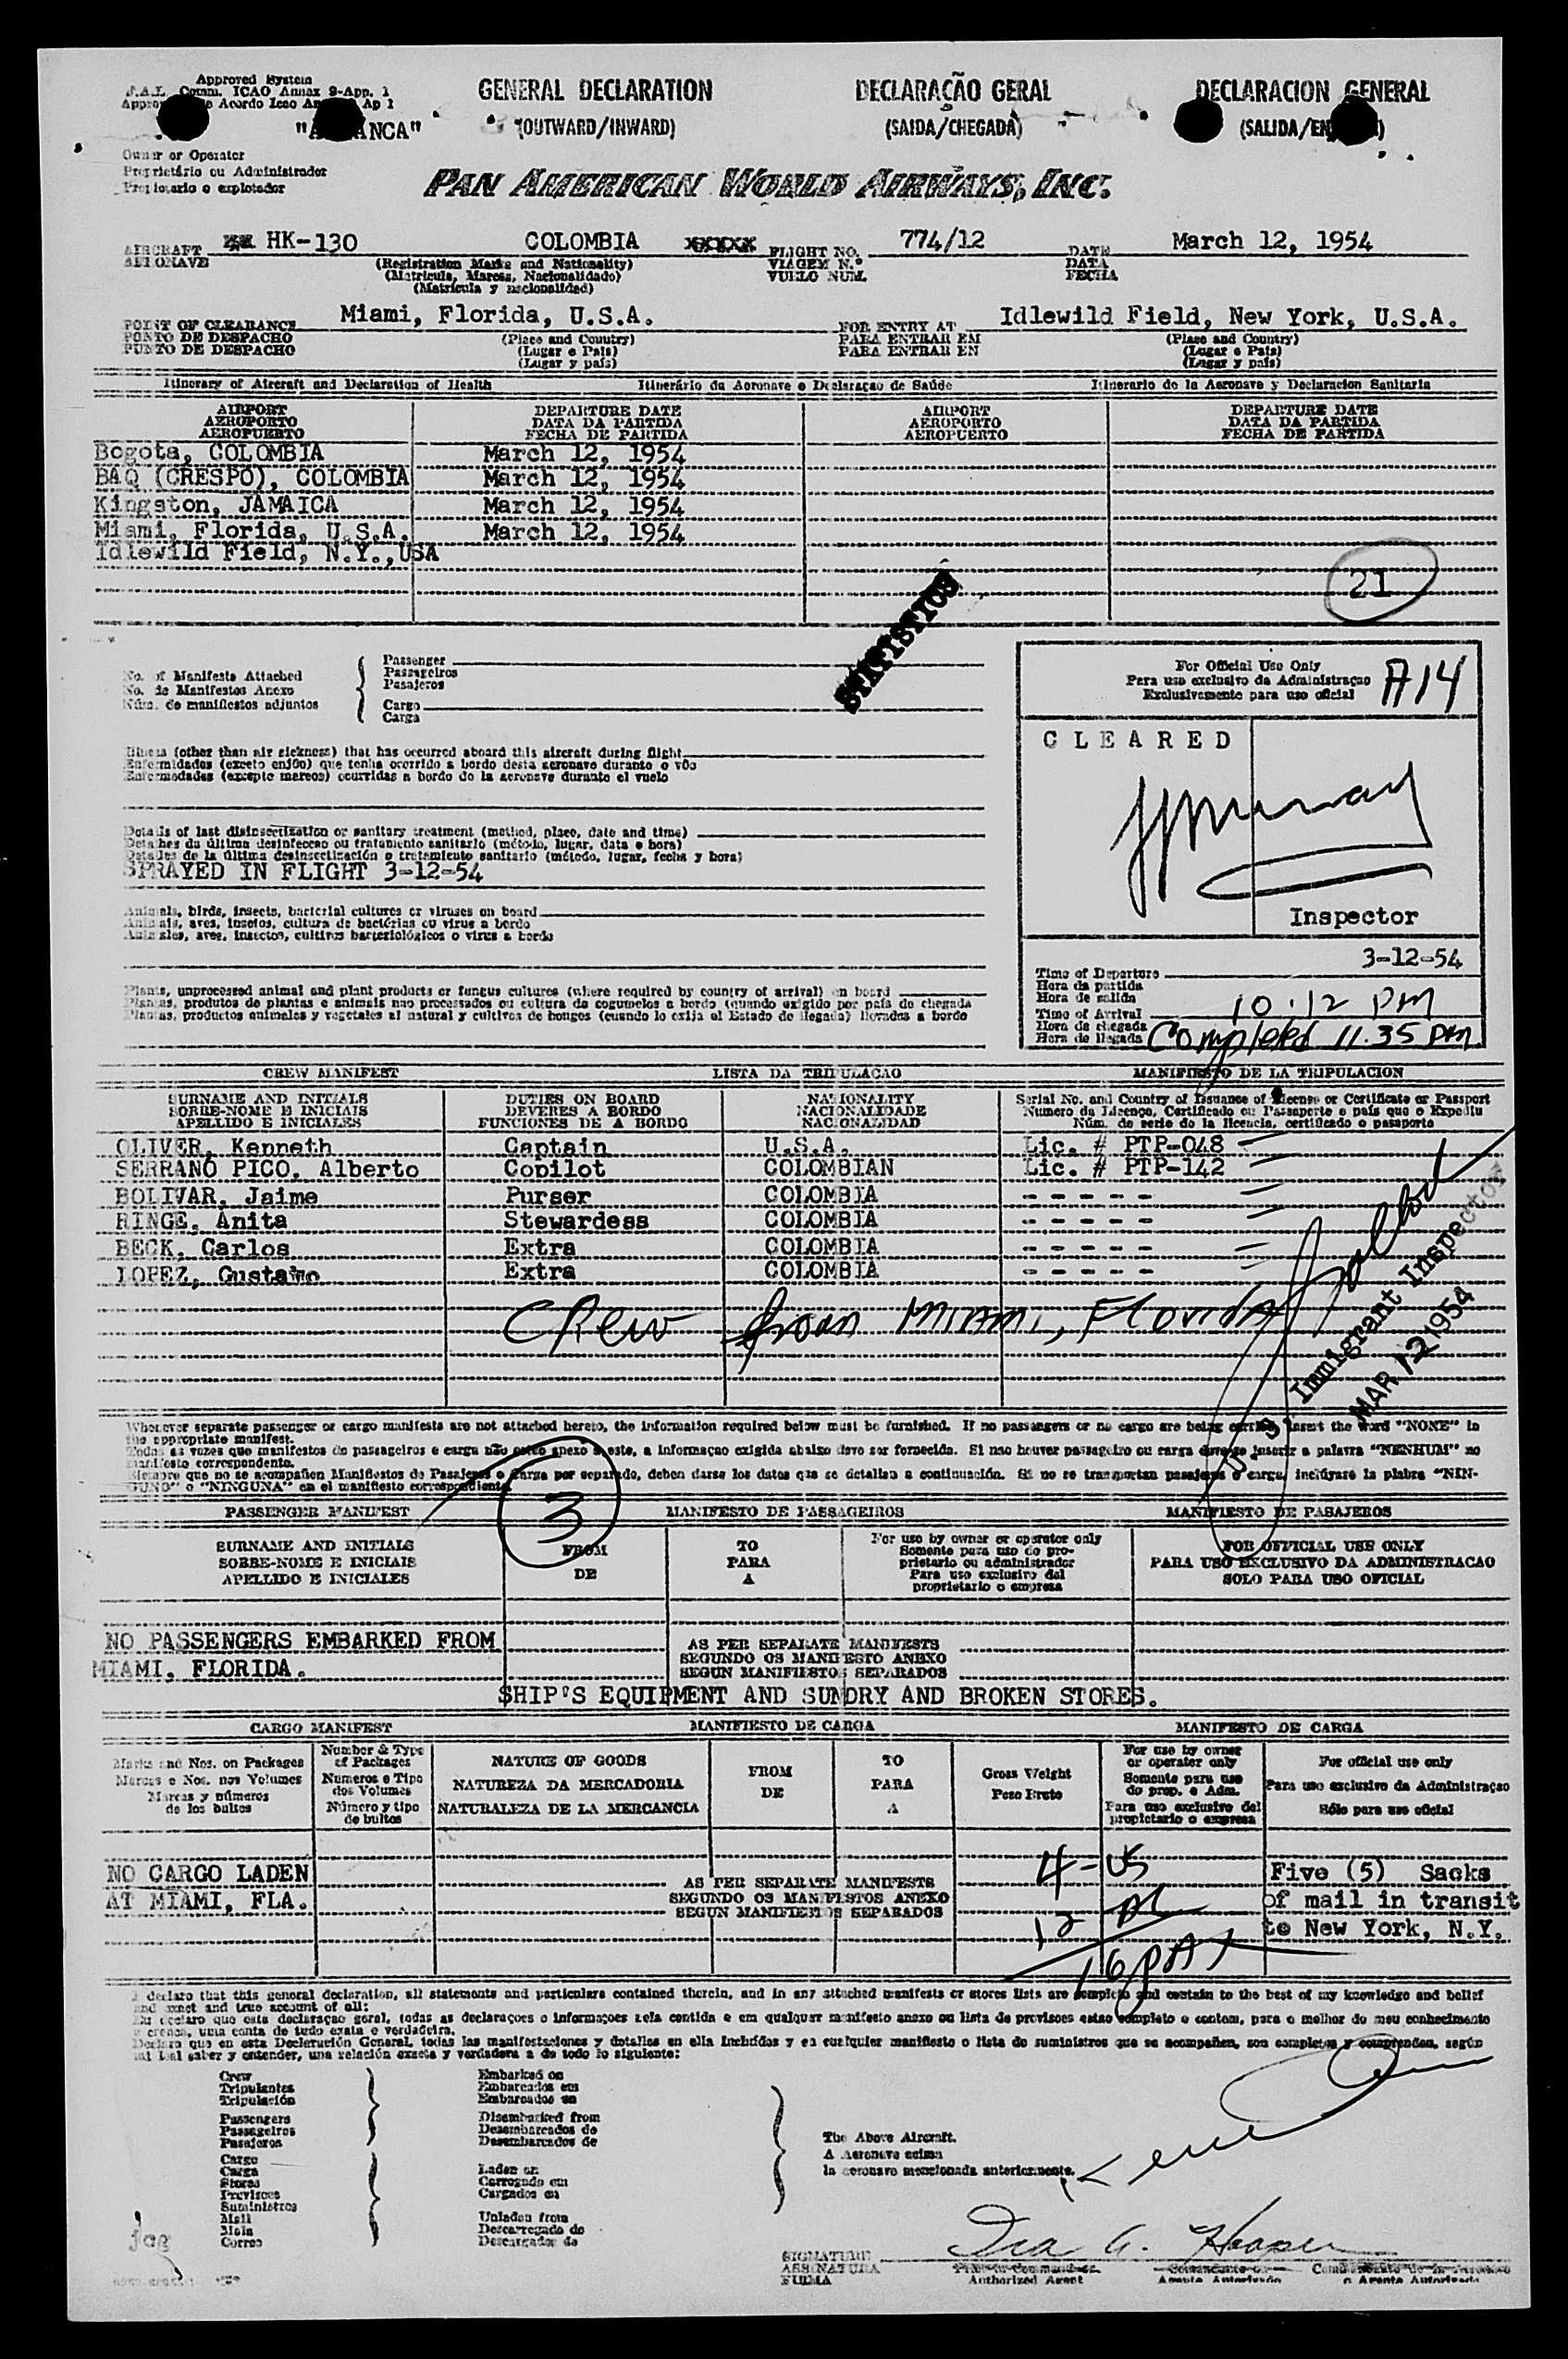 Approved System
F.A.L. Comm. ICAO Annex 9-App. 1
Acordo Icao Ap 1
GENERAL DECLARATION
(OUTWARD/INWARD)
DECLARAÇÃO GERAL
(SAIDA/CHEGADA)
DECLARACION GENERAL
Owner or Operator
Proprietário ou Administrador
Propietario o explotador
PAN AMERICAN WORLD AIRWAYS, INC.
AIRCRAFT HK-130 COLOMBIA FLIGHT NO. 774/12 DATE March 12, 1954
AERONAVE (Registration Marks and Nationality) VIAGEM N.º DATA
(Matricula, Marcas, Nacionalidade) VUELO NUM. FECHA
(Matricula y nacionalidad)
POINT OF CLEARANCE Miami, Florida, U.S.A. FOR ENTRY AT Idlewild Field, New York, U.S.A.
PONTO DE DESPACHO (Place and Country) PARA ENTRAR EM (Place and Country)
PUNTO DE DESPACHO (Lugar e Pais) PARA ENTRAR EN (Lugar e Pais)
(Lugar y país) (Lugar y país)
Itinerary of Aircraft and Declaration of Health Itinerário da Aeronave e Declaraçao de Saúde Itinerario de la Aeronave y Declaracion Sanitaria
AIRPORT DEPARTURE DATE AIRPORT DEPARTURE DATE
AEROPORTO DATA DA PARTIDA AEROPORTO DATA DA PARTIDA
AEROPUERTO FECHA DE PARTIDA AEROPUERTO FECHA DE PARTIDA
Bogota, COLOMBIA March 12, 1954
BAQ (CRESPO), COLOMBIA March 12, 1954
Kingston, JAMAICA March 12, 1954
Miami, Florida, U.S.A. March 12, 1954
Idlewild Field, N.Y.,USA
21
STATISTICS
No. of Manifests Attached
No. de Manifestos Anexo
Núm. de manifiestos adjuntos
Passenger
Passageiros
Pasajeros
Cargo
Carga
For Official Use Only
Para uso exclusivo da Administraçao
Exclusivamente para uso oficial
A14
CLEARED
Inspector
3-12-54
Time of Departure
Hora da partida
Hora de salida
Time of Arrival 10:12 PM
Hora da chegada
Hora de llegada Completed 11.35 PM
Illness (other than air sickness) that has occurred aboard this aircraft during flight
Enfermidades (exceto enjôo) que tenha ocorrido a bordo desta aeronave durante o vôo
Enfermedades (excepto mareos) ocurridas a bordo de la aeronave durante el vuelo
Details of last disinsectization or sanitary treatment (method, place, date and time)
Detalhes da última desinfeccao ou tratamento sanitario (método, lugar, data e hora)
Detalles de la última desinsectización o tratamiento sanitario (método, lugar, fecha y hora)
SPRAYED IN FLIGHT 3-12-54
Animals, birds, insects, bacterial cultures or viruses on board
Animais, aves, insetos, cultura de bactérias ou virus a bordo
Animales, aves, insectos, cultivos bacteriológicos o virus a bordo
Plants, unprocessed animal and plant products or fungus cultures (where required by country of arrival) on board
Plantas, produtos de plantas e animais nao processados ou cultura de cogumelos a bordo (quando exigido por pais de chegada
Plantas, productos animales y vegetales al natural y cultivos de hongos (cuando lo exija el Estado de llegada) llevados a bordo
CREW MANIFEST LISTA DA TRIPULACAO MANIFIESTO DE LA TRIPULACION
SURNAME AND INITIALS DUTIES ON BOARD NATIONALITY Serial No. and Country of Issuance of License or Certificate or Passport
SOBRE-NOME E INICIAIS DEVERES A BORDO NACIONALIDADE Numero da Licença, Certificado ou Passaporte e pais que o Expediu
APELLIDO E INICIALES FUNCIONES DE A BORDO NACIONALIDAD Núm. de serie de la licencia, certificado o pasaporte
OLIVER, Kenneth Captain U.S.A. Lic. # PTP-048
SERRANO PICO, Alberto Copilot COLOMBIAN Lic. # PTP-142
BOLIVAR, Jaime Purser COLOMBIA - - - - -
RINGE, Anita Stewardess COLOMBIA - - - - -
BECK, Carlos Extra COLOMBIA - - - - -
LOPEZ, Gustavo Extra COLOMBIA - - - - -
Crew from Miami, Florida
U. S. Immigrant Inspector
MAR 12 1954
Whenever separate passenger or cargo manifests are not attached hereto, the information required below must be furnished. If no passengers or no cargo are being carried insert the word "NONE" in
the appropriate manifest.
Todas as vezes que manifestos de passageiros e carga não estão anexo a este, a informaçao exigida abaixo deve ser fornecida. Si nao houver passageiro ou carga deve se inserir a palavra "NENHUM" no
manifesto correspondente.
Siempre que no se acompañen Manifiestos de Pasajeros o Carga por separado, deben darse los datos que se detallan a continuación. Si no se transportan pasajeros o carga, inclúyase la plabra "NIN-
GUNO" o "NINGUNA" en el manifiesto correspondiente.
3
PASSENGER MANIFEST MANIFESTO DE PASSAGEIROS MANIFIESTO DE PASAJEROS
SURNAME AND INITIALS FROM TO For use by owner or operator only FOR OFFICIAL USE ONLY
SOBRE-NOME E INICIAIS DE PARA Somente para uso do pro-
prietario ou administrador PARA USO EXCLUSIVO DA ADMINISTRACAO
APELLIDO E INICIALES A Para uso exclusivo del
propietario o empresa SOLO PARA USO OFICIAL
NO PASSENGERS EMBARKED FROM AS PER SEPARATE MANIFESTS
MIAMI, FLORIDA. SEGUNDO OS MANIFESTO ANEXO
SEGUN MANIFIESTOS SEPARADOS
SHIP'S EQUIPMENT AND SUNDRY AND BROKEN STORES.
CARGO MANIFEST MANIFIESTO DE CARGA MANIFESTO DE CARGA
Marks and Nos. on Packages
Marcas e Nos. nos Volumes
Marcas y números
de los bultos
Number & Type
of Packages
Numeros e Tipo
dos Volumes
Número y tipo
de bultos
NATURE OF GOODS
NATUREZA DA MERCADORIA
NATURALEZA DE LA MERCANCIA
FROM
DE
TO
PARA
A
Gross Weight
Peso Bruto
For use by owner
or operator only
Somente para uso
do prop. e Adm.
Para uso exclusivo del
propietario o empresa
For official use only
Para uso exclusivo da Administraçao
Sólo para uso oficial
NO CARGO LADEN
AT MIAMI, FLA.
AS PER SEPARATE MANIFESTS
SEGUNDO OS MANIFESTOS ANEXO
SEGUN MANIFIESTOS SEPARADOS
4-US
12
16
Five (5) Sacks
of mail in transit
to New York, N.Y.
I declare that this general declaration, all statements and particulars contained therein, and in any attached manifests or stores lists are complete and contain to the best of my knowledge and belief
and exact and true account of all:
Eu declaro que esta declaraçao geral, todas as declaraçoes e informaçoes nela contida e em qualquer manifesto anexo ou lista de provisoes estao completo e contem, para o melhor do meu conhecimento
e crença, uma conta de tudo exata e verdadeira.
Declaro que en esta Declaración General, todas las manifestaciones y detalles en ella incluídos y en cualquier manifiesto o lista de suministros que se acompañen, son completos y comprenden, según
mi leal saber y entender, una relación exacta y verdadera a de todo lo siguiente:
Crew
Tripulantes
Tripulación
Passengers
Passageiros
Pasajeros
Cargo
Carga
Stores
Provisoes
Suministros
Mail
Mala
Correo
Embarked on
Embarcados em
Embarcados en
Disembarked from
Desembarcados de
Desembarcados de
Laden on
Carregado em
Cargados en
Unladen from
Descarregado de
Descargados de
The Above Aircraft.
A Aeronave acima
la aeronave mencionada anteriormente.
SIGNATURE
ASSINATURA
FIRMA
Authorized Agent
Agente Autorizado
o Agente Autorizado